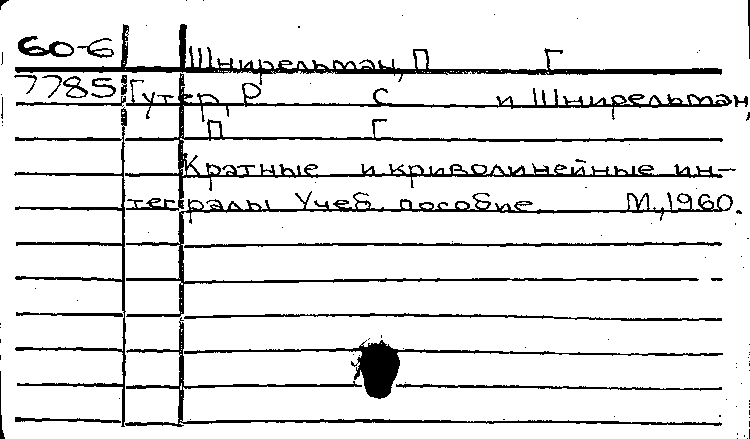 60-6 Шнирельман, П Г
7785 Гутер, Р С и Шнирельман,
П Г
Кратные и криволинейные ин-
тегралы Учеб. пособие М., 1960.